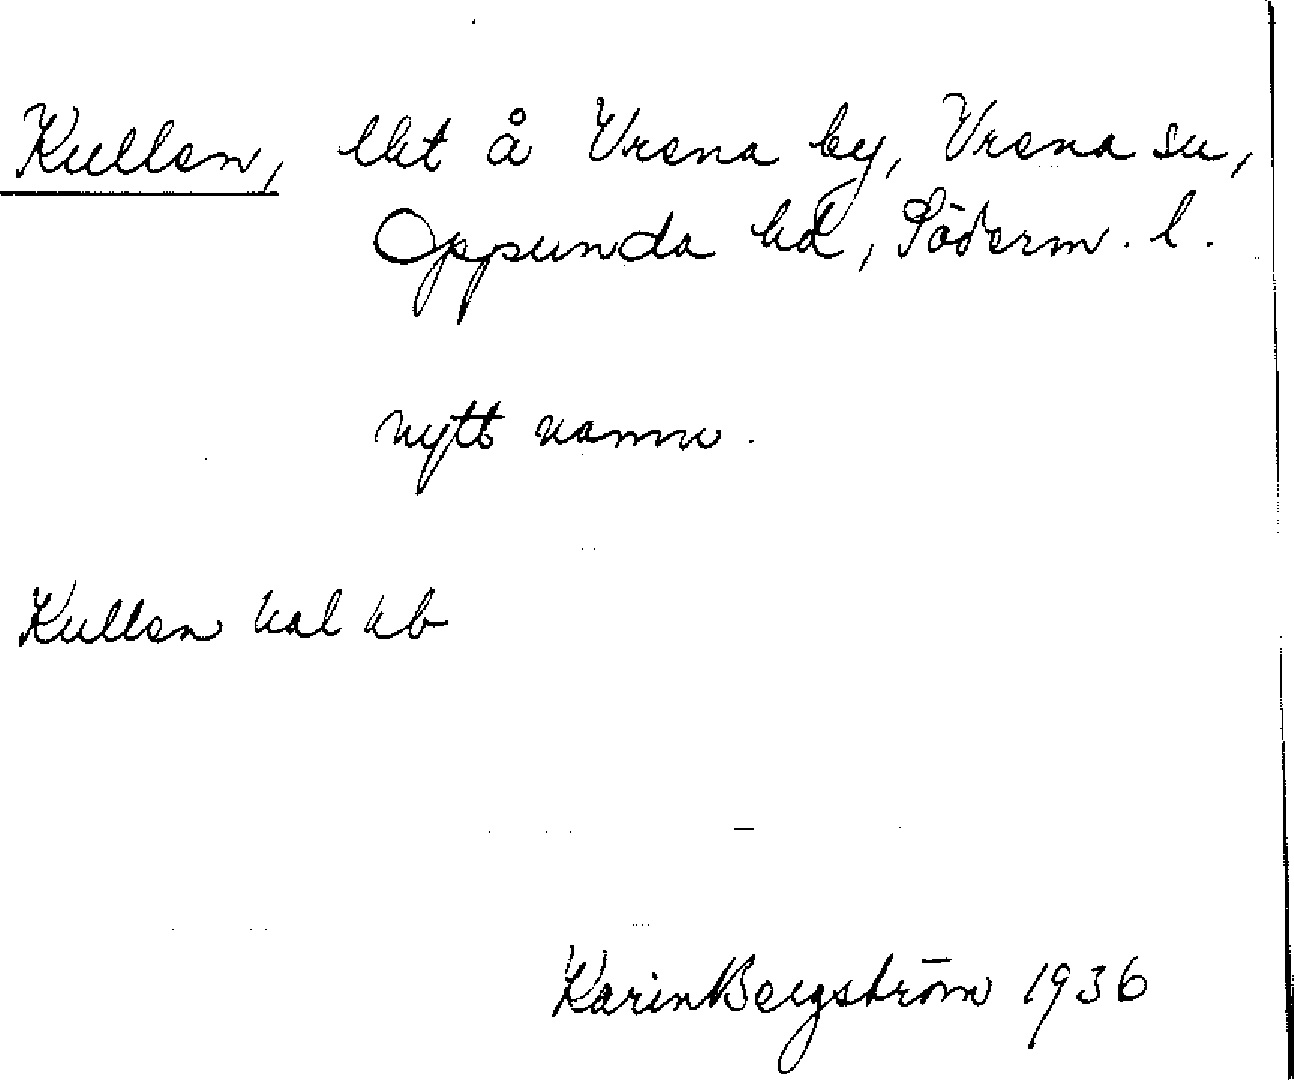 Kullen, lht å Vrena by, Vrena sn,
Oppunda hd, Söderm. l.
nytt namn.
Kullen hal hb
Karin Bergström 1936